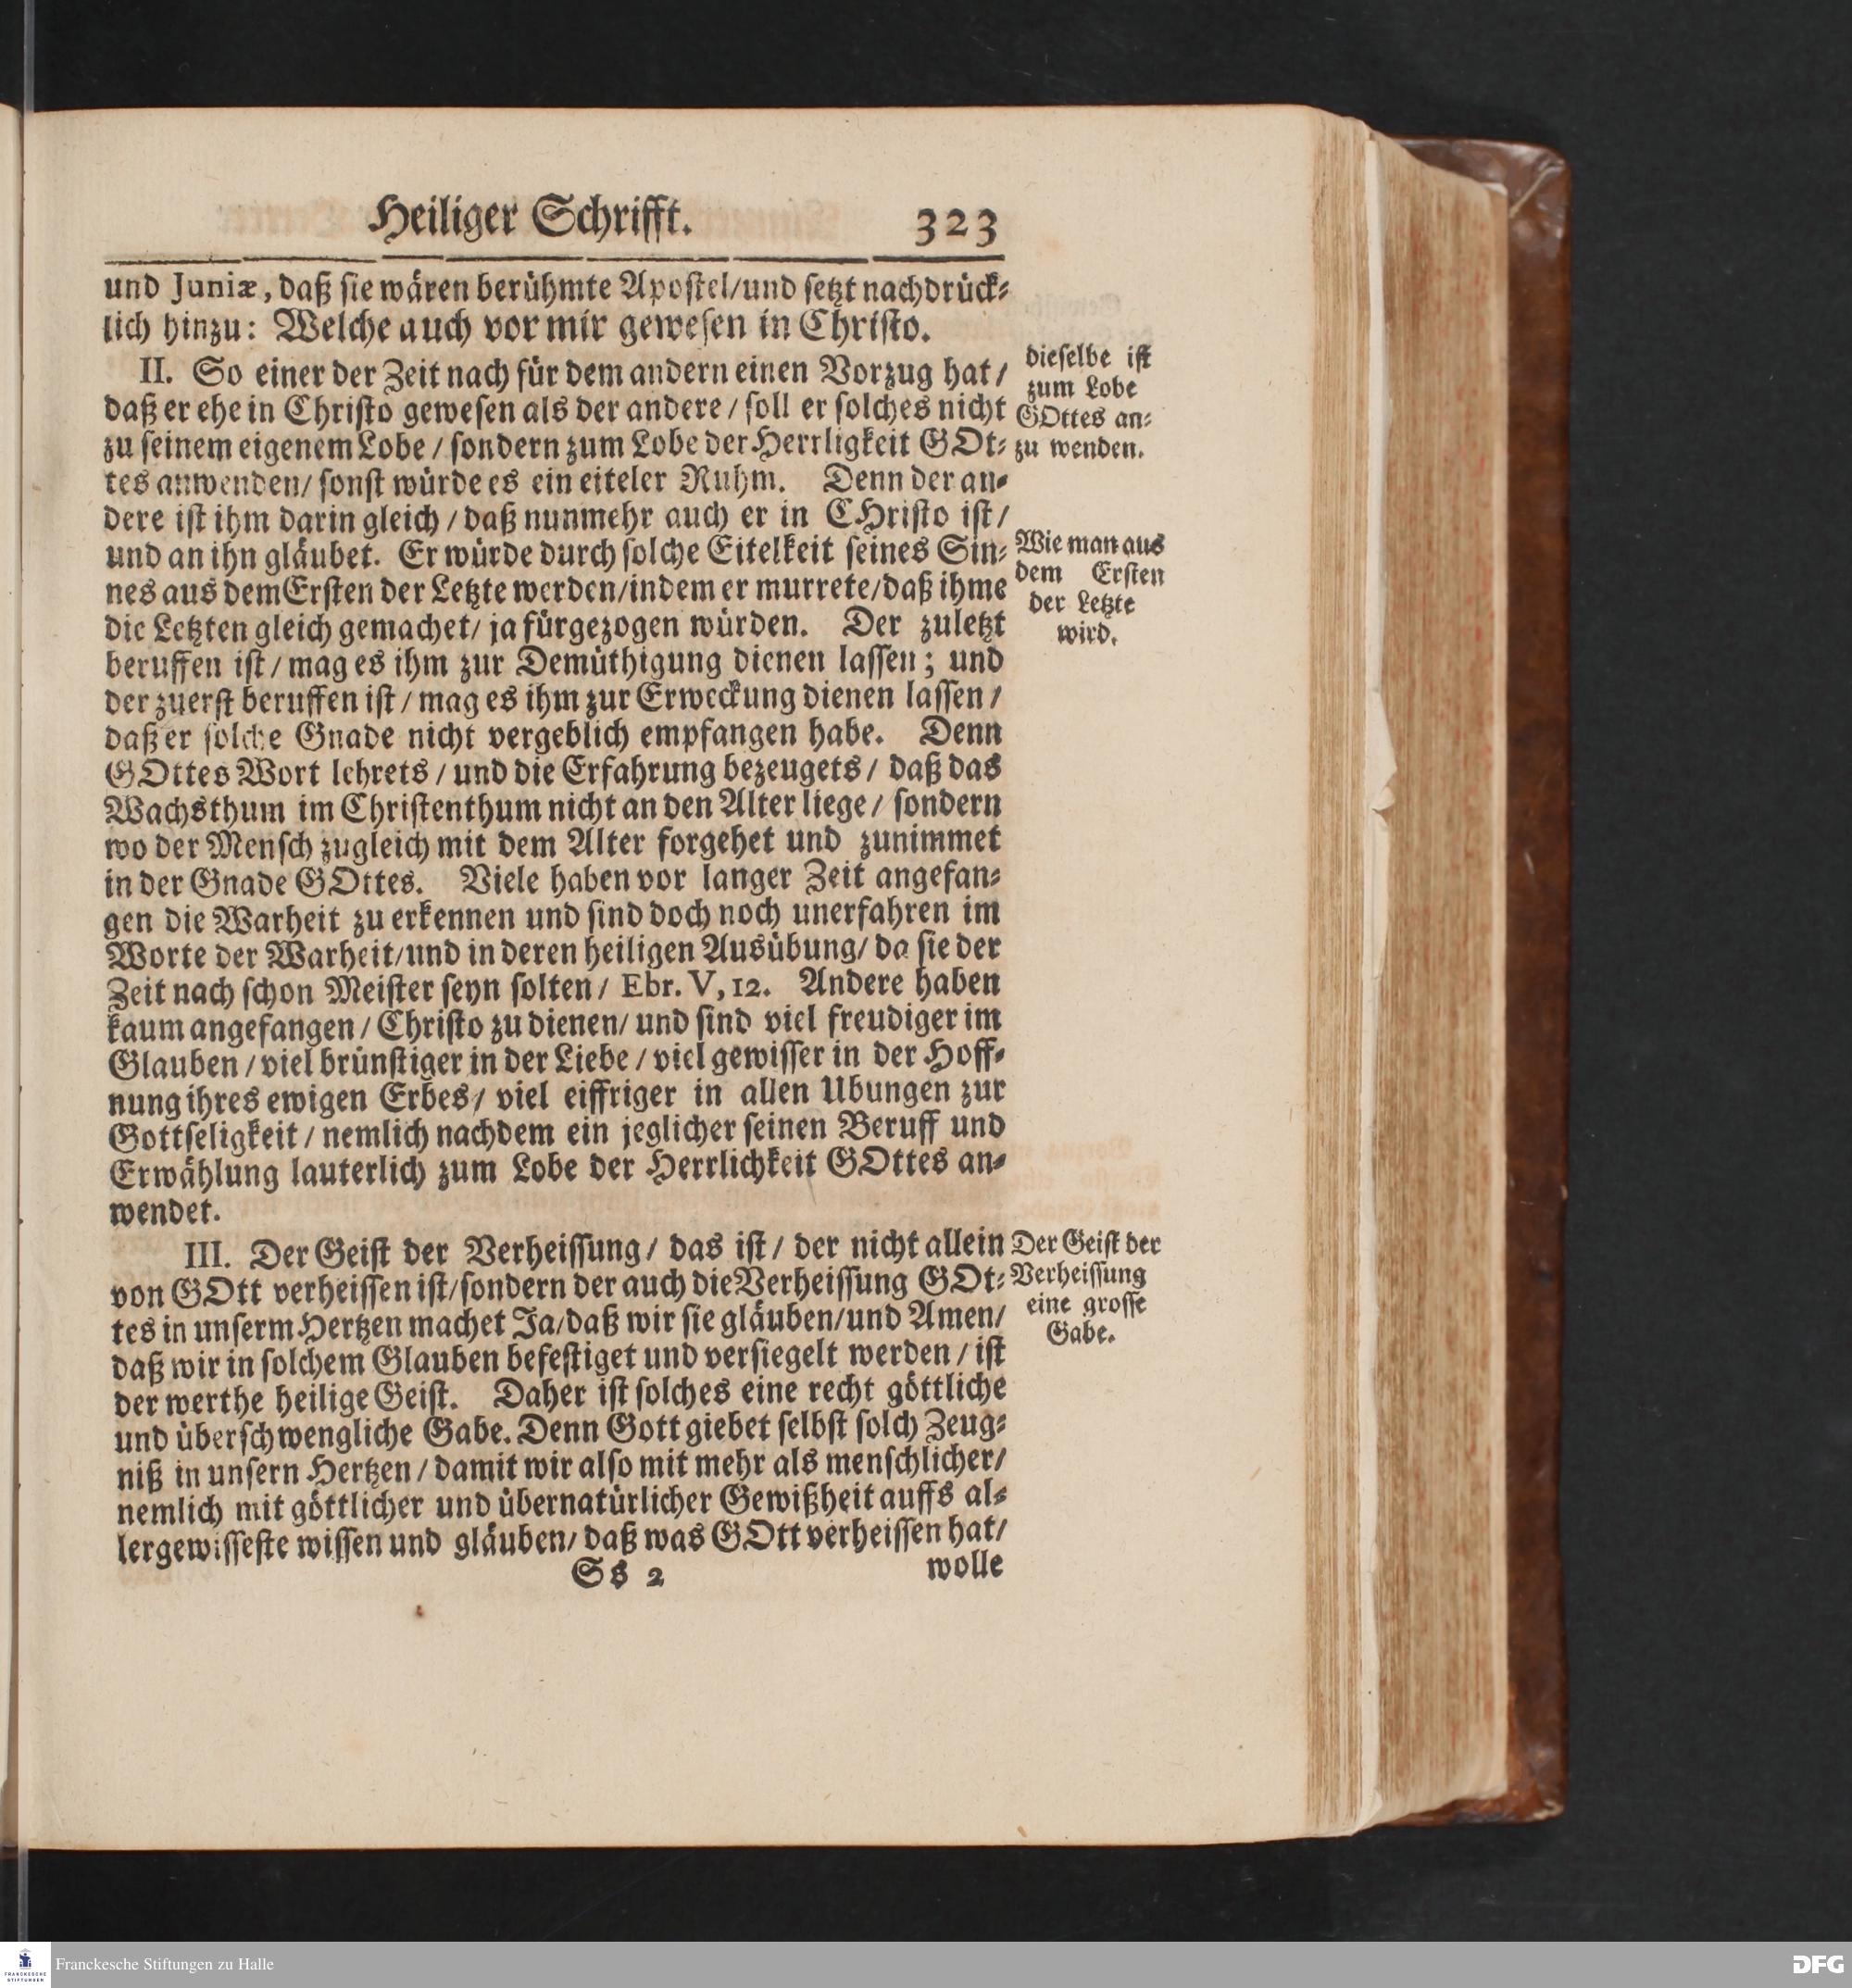 Heiliger Schrifft. 323
und Juniæ, daß sie wären berühmte Apostel/und setzt nachdrück-
lich hinzu: Welche auch vor mir gewesen in Christo.
II. So einer der Zeit nach für dem andern einen Vorzug hat/
daß er ehe in Christo gewesen als der andere/ soll er solches nicht
zu seinem eigenem Lobe/ sondern zum Lobe der Herrligkeit GOt-
tes anwenden/ sonst würde es ein eiteler Ruhm. Denn der an-
dere ist ihm darin gleich/ daß nunmehr auch er in CHristo ist/
und an ihn gläubet. Er würde durch solche Eitelkeit seines Sin-
nes aus dem Ersten der Letzte werden/indem er murrete/daß ihme
die Letzten gleich gemachet/ ja fürgezogen würden. Der zuletzt
beruffen ist/ mag es ihm zur Demüthigung dienen lassen; und
der zuerst beruffen ist/ mag es ihm zur Erweckung dienen lassen/
daß er solche Gnade nicht vergeblich empfangen habe. Denn
GOttes Wort lehrets/ und die Erfahrung bezeugets/ daß das
Wachsthum im Christenthum nicht an den Alter liege/ sondern
wo der Mensch zugleich mit dem Alter forgehet und zunimmet
in der Gnade GOttes. Viele haben vor langer Zeit angefan-
gen die Warheit zu erkennen und sind doch noch unerfahren im
Worte der Warheit/und in deren heiligen Ausübung/ da sie der
Zeit nach schon Meister seyn solten/ Ebr. V, 12. Andere haben
kaum angefangen/ Christo zu dienen/ und sind viel freudiger im
Glauben/ viel brünstiger in der Liebe/ viel gewisser in der Hoff-
nung ihres ewigen Erbes/ viel eiffriger in allen Ubungen zur
Gottseligkeit/ nemlich nachdem ein jeglicher seinen Beruff und
Erwählung lauterlich zum Lobe der Herrlichkeit GOttes an-
wendet.
III. Der Geist der Verheissung/ das ist/ der nicht allein
von GOtt verheissen ist/sondern der auch die Verheissung GOt-
tes in unserm Hertzen machet Ja/daß wir sie gläuben/und Amen/
daß wir in solchem Glauben befestiget und versiegelt werden/ ist
der werthe heilige Geist. Daher ist solches eine recht göttliche
und überschwengliche Gabe. Denn Gott giebet selbst solch Zeug-
niß in unsern Hertzen/ damit wir also mit mehr als menschlicher/
nemlich mit göttlicher und übernatürlicher Gewißheit auffs al-
lergewisseste wissen und gläuben/ daß was GOtt verheissen hat/
Ss 2 wolle
dieselbe ist
zum Lobe
GOttes an-
zu wenden.
Wie man aus
dem Ersten
der Letzte
wird.
Der Geist der
Verheissung
eine grosse
Gabe.
FRANCKESCHE
STIFTUNGEN
Franckesche Stiftungen zu Halle
DFG